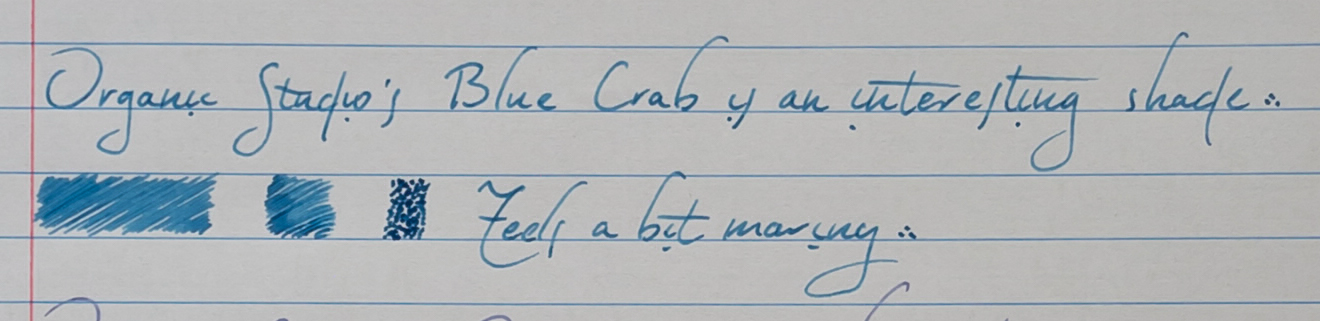 Organic Studio's Blue Crab is an interesting shade∴
Feels a bit mariny∴